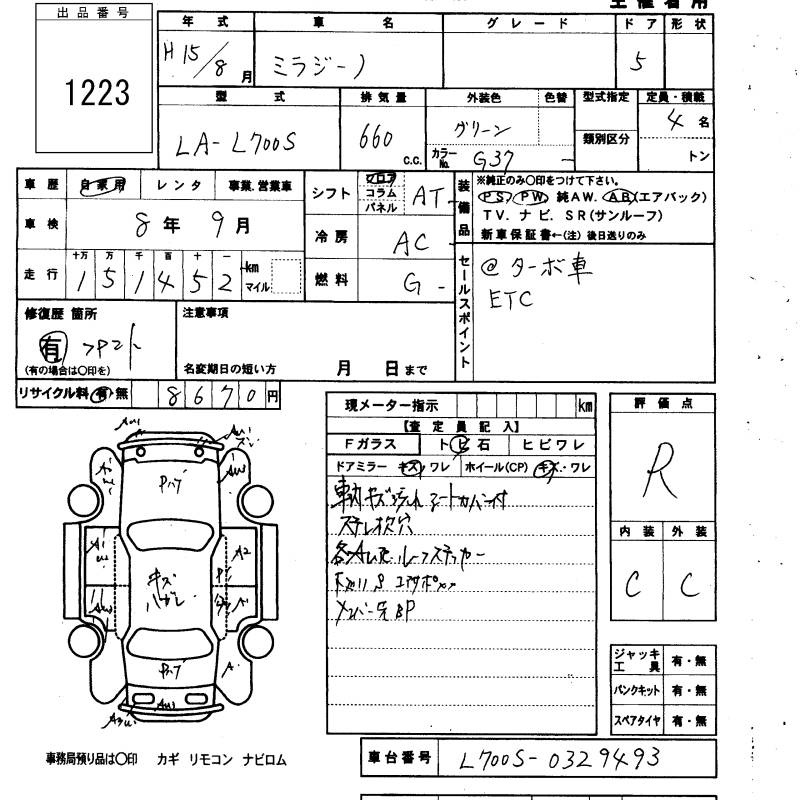 主催者用
出品番号
1223
年式 車名 グレード ドア 形状
H15/8月 ミラジーノ 5
型式 排気量 外装色 色替 型式指定 定員・積載
LA-L700S 660 c.c. グリーン 類別区分 4名
カラーNo. G37 - トン
車歴 自家用 レンタ 事業.営業車
シフト フロア コラム パネル AT
車検 8年9月
冷房 AC
走行 十万 万 千 百 十 一
151452 km マイル
燃料 G -
装備品 ※純正のみ〇印をつけて下さい。
PS PW 純AW. AB(エアバック)
TV. ナビ. SR(サンルーフ)
新車保証書←(注)後日送りのみ
セールスポイント
@ターボ車
ETC
修復歴 箇所
有 フロント
(有の場合は〇印を)
注意事項
名変期日の短い方 月 日まで
リサイクル料 有 無 8670円
現メーター指示 km
【査定員記入】
Fガラス トビ石 ヒビワレ
ドアミラー キズ ワレ ホイール(CP) キズ・ワレ
シートカバー付
穴
ルーフステッカー
エアサポ
評価点
R
内装 外装
C C
A2
キズ
ハガレ
ジャッキ工具 有・無
パンクキット 有・無
スペアタイヤ 有・無
事務局預り品は〇印 カギ リモコン ナビロム
車台番号 L700S-0329493